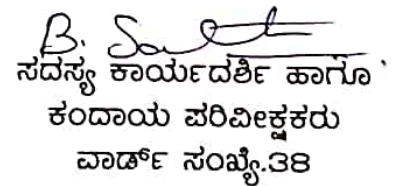 ಸದಸ್ಯ ಕಾರ್ಯದರ್ಶಿ ಹಾಗೂ
ಕಂದಾಯ ಪರಿವೀಕ್ಷಕರು
ವಾರ್ಡ್ ಸಂಖ್ಯೆ.38